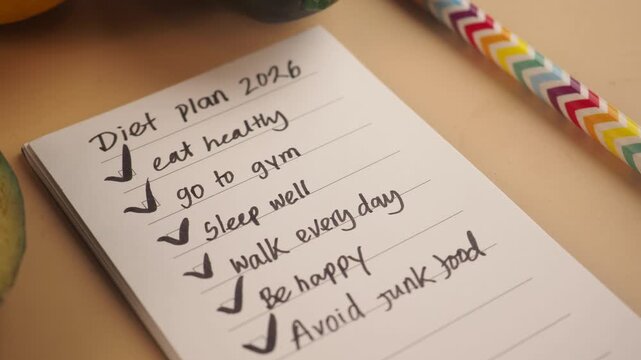 Diet plan 2026
✓ eat healthy
✓ go to gym
✓ sleep well
✓ walk every day
✓ Be happy
✓ Avoid junk food